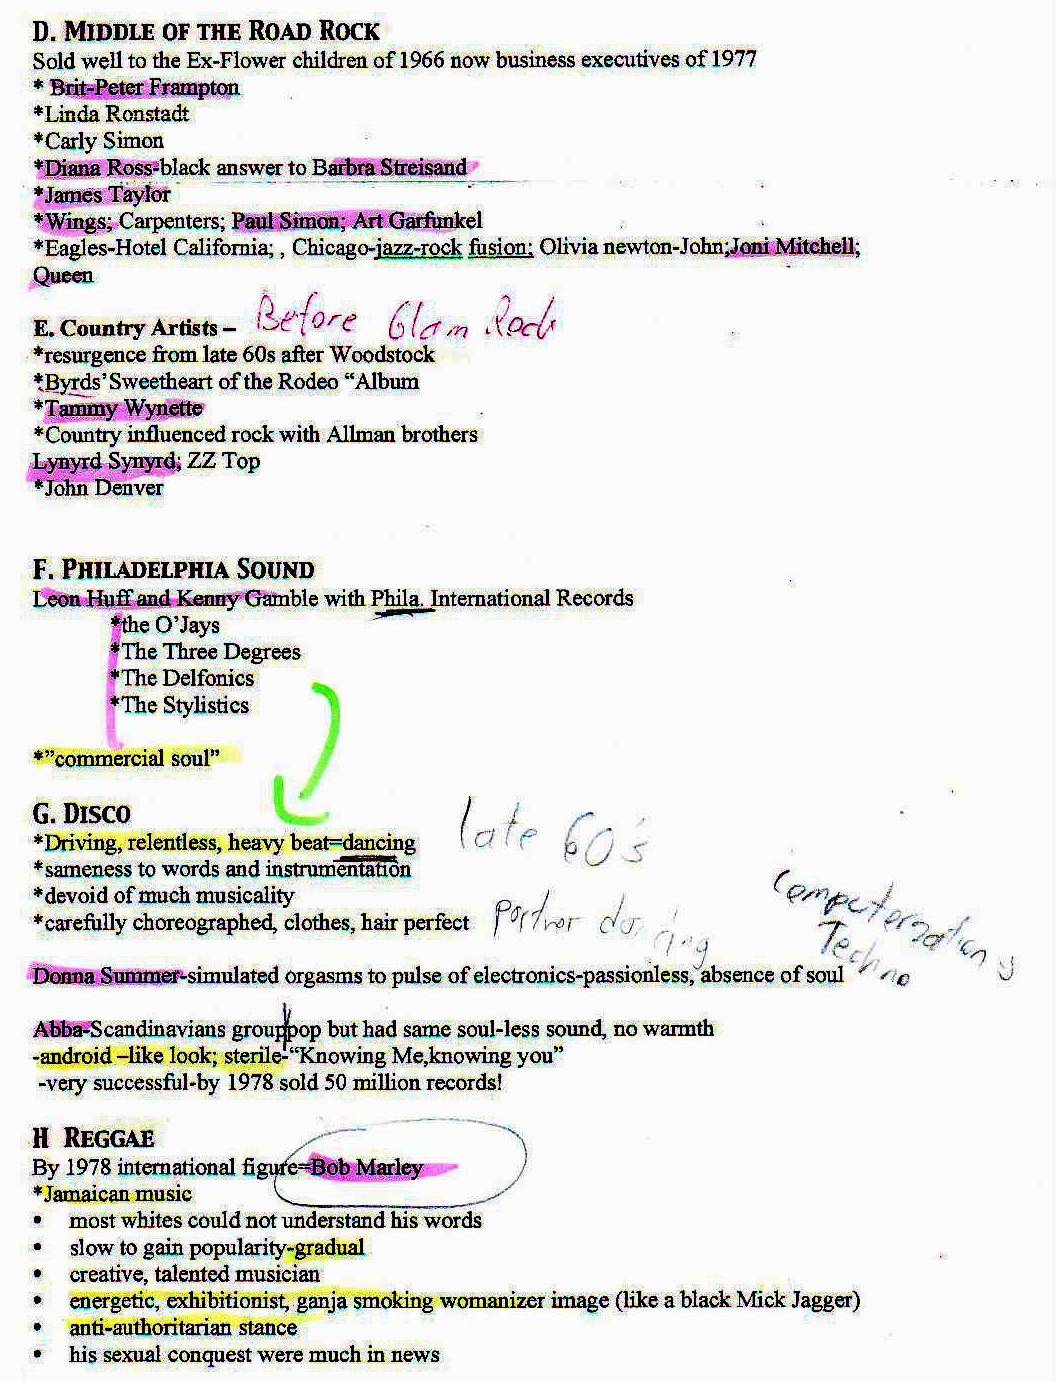 D. MIDDLE OF THE ROAD ROCK
Sold well to the Ex-Flower children of 1966 now business executives of 1977
* Brit-Peter Frampton
*Linda Ronstadt
*Carly Simon
*Diana Ross-black answer to Barbra Streisand
*James Taylor
*Wings; Carpenters; Paul Simon; Art Garfunkel
*Eagles-Hotel California; , Chicago-jazz-rock fusion; Olivia newton-John;Joni Mitchell;
Queen
E. Country Artists – Before Glam Rock
*resurgence from late 60s after Woodstock
*Byrds' Sweetheart of the Rodeo “Album
*Tammy Wynette
*Country influenced rock with Allman brothers
Lynyrd Synyrd; ZZ Top
*John Denver
F. PHILADELPHIA SOUND
Leon Huff and Kenny Gamble with Phila. International Records
*the O'Jays
*The Three Degrees
*The Delfonics
*The Stylistics
*”commercial soul”
G. DISCO
*Driving, relentless, heavy beat=dancing late 60's
*sameness to words and instrumentation
*devoid of much musicality
*carefully choreographed, clothes, hair perfect partner dancing
Computerization
Techno
Donna Summer-simulated orgasms to pulse of electronics-passionless, absence of soul
Abba-Scandinavians group pop but had same soul-less sound, no warmth
-android –like look; sterile-“Knowing Me,knowing you”
-very successful-by 1978 sold 50 million records!
H REGGAE
By 1978 international figure=Bob Marley
*Jamaican music
• most whites could not understand his words
• slow to gain popularity-gradual
• creative, talented musician
• energetic, exhibitionist, ganja smoking womanizer image (like a black Mick Jagger)
• anti-authoritarian stance
• his sexual conquest were much in news